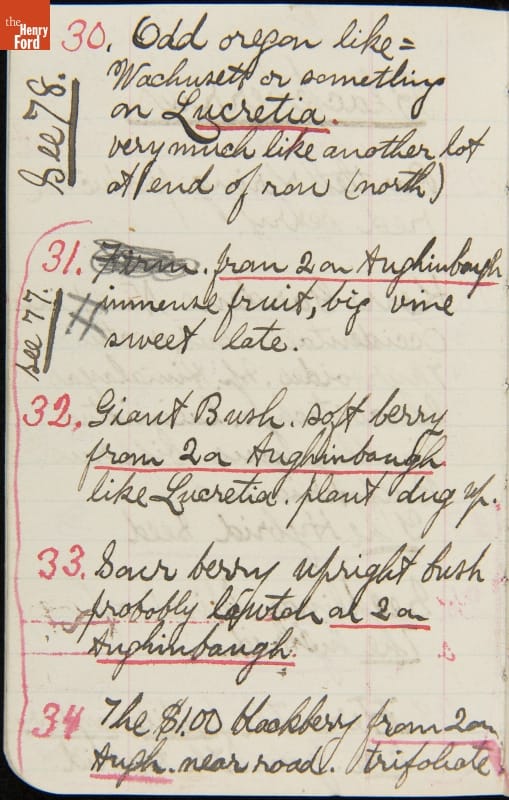 the
Henry
Ford
30. Odd oregon like =
Wachusett or something
on Lucretia.
very much like another lot
at end of row (north)
See 78.
31. Firm. from 2 on Aughinbaugh
immense fruit, big vine
sweet late.
see 77.
#
32. Giant Bush. soft berry
from 2 on Aughinbaugh
like Lucretia. plant dug up.
33. Sour berry upright bush
probobly lawton on 2 on
Aughinbaugh.
34 The $1.00 blackberry from 2 on
Augh. near road. trifoliate